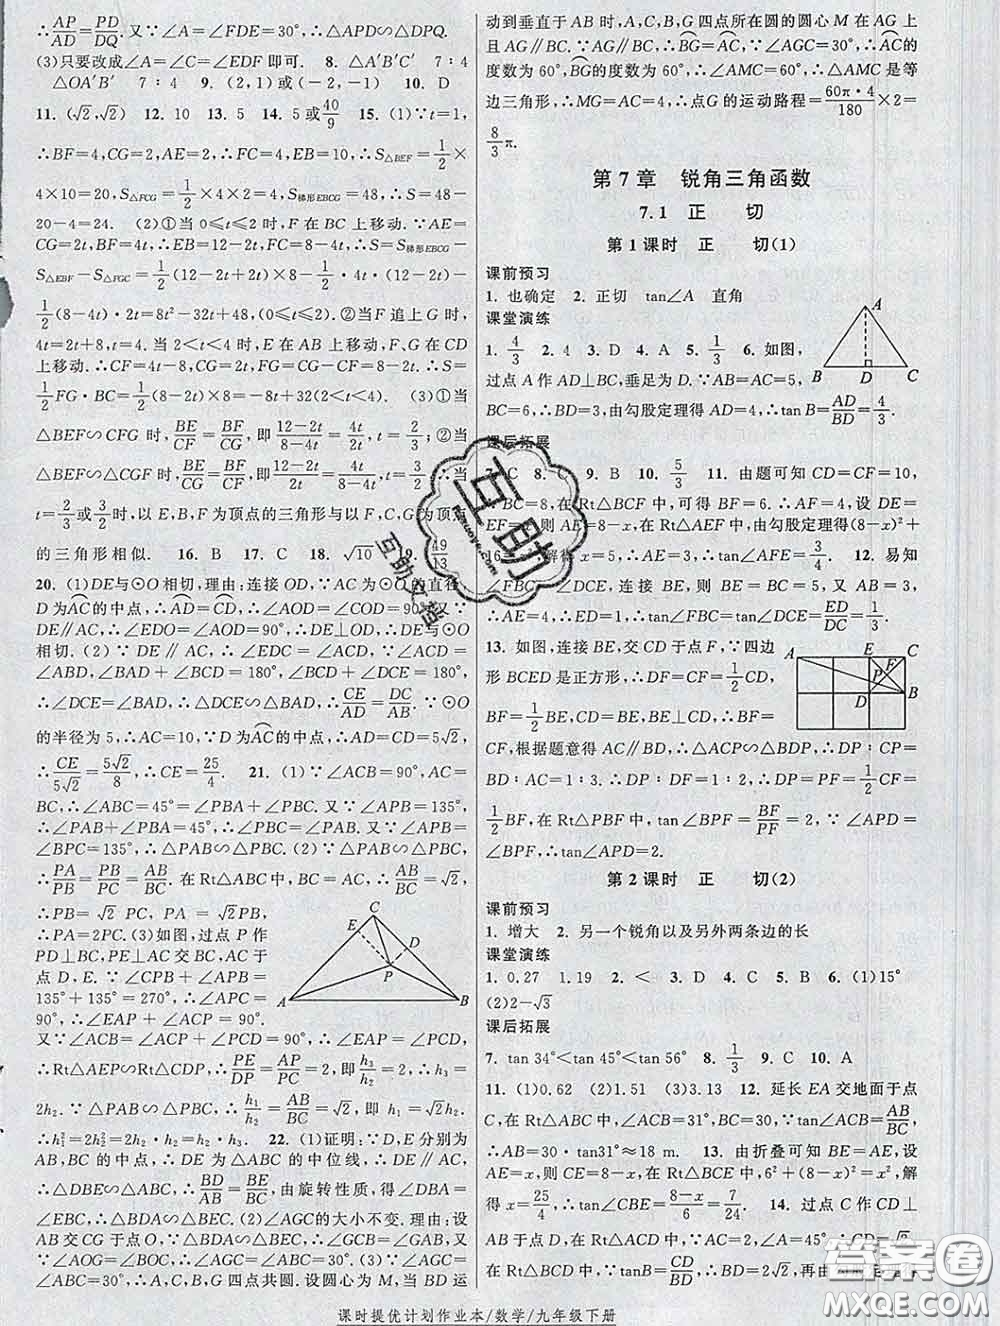 ∴AP/AD=PD/DQ. 又∵∠A=∠FDE=30°,∴△APD∽△DPQ.
(3)只要改成∠A=∠C=∠EDF即可. 8. △A′B′C′ 7∶4
△OA′B′ 7∶4 9. (2,1)或(-2,-1) 10. D
11. (√2,√2) 12. 10 13. 5 14. 5或40/9 15. (1)∵t=1,
∴BF=4,CG=2,AE=2,∴FC=4,EB=10,∴S△BEF=1/2×
4×10=20,S△FCG=1/2×4×2=4,S梯形EBCG=48,∴S=48-
20-4=24. (2)①当0≤t≤2时,F在BC上移动.∵AE=
CG=2t,BF=4t,∴EB=12-2t,FC=8-4t,∴S=S梯形EBCG-
S△EBF-S△FGC=1/2(12-2t+2t)×8-1/2·4t(12-2t)-
1/2(8-4t)·2t=8t²-32t+48,(0≤t≤2).②当F追上G时,
4t=2t+8,∴t=4. 当2<t<4时,E在AB上移动,F、G在CD
上移动.∴CF=4t-8,CG=2t,∴FG=CG-CF=8-2t,∴S=
1/2FG·BC=1/2(8-2t)×8=-8t+32(2<t<4). (3)①当
△BEF∽CFG时,BE/CF=BF/CG,即12-2t/8-4t=4t/2t,t=2/3;②当
△BEF∽△CGF时,BE/CG=BF/CF,即12-2t/2t=4t/8-4t,
t=2/3或3/2时,以E、B、F为顶点的三角形与以F、C、G为顶点
的三角形相似. 16. B 17. C 18. √10 19. 49/13
20. (1)DE与⊙O相切,理由:连接OD,∵AC为⊙O的直径
D为AC的中点,∴AD=CD,∴∠AOD=∠COD=90°
DE∥AC,∴∠EDO=∠AOD=90°,∴DE⊥OD,∴DE与⊙O
相切. (2)∵DE∥AC,∴∠EDC=∠ACD,∵∠ACD
=∠ABD,∴∠EDC=∠ABD,∵∠DCE+∠BCD=180°,
∠BAD+∠BCD=180°,
∴∠DCE=∠BAD,∴△DCE∽△BAD,∴CE/AD=DC/AB.∵⊙O
的半径为5,∴AC=10,∵D为AC的中点,∴AD=CD=5√2,
∴CE/5√2=5√2/8,∴CE=25/4. 21. (1)∵∠ACB=90°,AC=
BC,∴∠ABC=45°=∠PBA+∠PBC. 又∵∠APB=135°,
∴∠PAB+∠PBA=45°,∴∠PBC=∠PAB. 又∵∠APB=
∠BPC=135°,∴△PAB∽△PBC. (2)∵△PAB∽△PBC,
∴PA/PB=PB/PC=AB/BC. 在Rt△ABC中,BC=AC,∴AB/BC=√2,
∴PB=√2PC, PA=√2PB,
∴PA=2PC. (3)如图,过点P作
PD⊥BC,PE⊥AC交BC、AC于
点D、E.∵∠CPB+∠APB=
135°+135°=270°,∴∠APC=
90°,∴∠EAP+∠ACP=90°.
又∵∠ACB=∠ACP+∠PCD=90°,∴∠EAP=∠PCD,
∴Rt△AEP∽Rt△CDP,∴PE/DP=AP/PC=2,即h₃/h₂=2,∴h₃=
2h₂.∵△PAB∽△PBC,∴h₁/h₂=AB/BC=√2,即h₁=√2h₂.
∴h₁²=2h₂²=2h₂·h₂=h₂·h₃. 22. (1)证明:∵D,E分别为
AB,BC的中点,∴DE为△ABC的中位线,∴DE∥AC,
∴△DBE∽△ABC,∴BD/AB=BE/BC,由旋转性质,得∠DBA=
∠EBC,∴△BDA∽△BEC. (2)∠AGC的大小不变. 理由:设
AB交CG于点O,∵△BDA∽△BEC,∴∠GAB=∠OCB,
∵∠AOG=∠BOC,∴∠AGC=∠ABC=30°. (3)∵∠AGC=
∠ABC=30°,∴A,C,B,G四点共圆.设圆心为M,当BD运
A B C D E P
动到垂直于AB时,A,C,B,G四点所在圆的圆心M在AG上
且AG∥BC.∴BG=AC,∵∠AGC=30°,∴AC的
度数为60°,BG的度数为60°,∴∠AMC=60°,∴△AMC是等
边三角形,∴MG=AC=4,∴点G的运动路程=60π·4/180×2=
8/3π.
第7章 锐角三角函数
7.1 正 切
第1课时 正 切(1)
课前预习
1. 也确定 2. 正切 tan∠A 直角
课堂演练
1. 4/3 2. 4 3. D 4. A 5. 1/3 6. 如图,
过点A作AD⊥BC,垂足为D.∵AB=AC=5,
BC=6,∴BD=3,由勾股定理得AD=4,∴tanB=AD/BD=4/3.
A B D C
课后拓展
7. C 8. C 9. B 10. 5/3 11. 由题可知CD=CF=10,
BC=8,在Rt△BCF中,可得BF=6.∴AF=4,设DE=
EF=x,则AE=8-x,在Rt△AEF中,由勾股定理得(8-x)²+
16=x²,解得x=5,∴AE=3,∴tan∠AFE=3/4. 12. 易知
∠FBC=∠DCE,连接BE,则BE=BC=5,
∴AE=4,∴ED=1,∴tan∠FBC=tan∠DCE=ED/DC=1/3.
13. 如图,连接BE,交CD于点F,∵四边
形BCED是正方形,∴DF=CF=1/2CD,
BF=1/2BE,CD=BE,BE⊥CD,∴BF=
CF,根据题意得AC∥BD,∴△ACP∽△BDP,∴DP∶CP=
BD∶AC=1∶3,∴DP∶DF=1∶2,∴DP=PF=1/2CF=
1/2BF,在Rt△PBF中,tan∠BPF=BF/PF=2,∵∠APD=
∠BPF,∴tan∠APD=2.
A E C P D B
第2课时 正 切(2)
课前预习
1. 增大 2. 另一个锐角以及另外两条边的长
课堂演练
1. 0.27 1.19 2. < 3. D 4. C 5. B 6. (1)15°
(2)2-√3
课后拓展
7. tan34°<tan45°<tan56° 8. 1/3 9. C 10. A
11. (1)0.62 (2)1.51 (3)3.13 12. 延长EA交地面于点
C,在Rt△ABC中,∠ACB=31°,BC=30,∴tan∠ACB=AB/BC
∴AB=30·tan31°≈18 m. 13. 由折叠可知BE=AE,设
AE=x,则CE=8-x,在Rt△BCE中,6²+(8-x)²=x²,解
得x=25/4,∴tan∠CBE=8-x/6=7/24. 14. 过点C作CD⊥
AB于点D,在Rt△ADC中,∵∠A=45°,∴AD=CD=√2,
在Rt△BCD中,∵tanB=CD/BD,∴BD=2√2,再由
课时提优计划作业本/数学/九年级下册
互助
互助文湖
答案圈